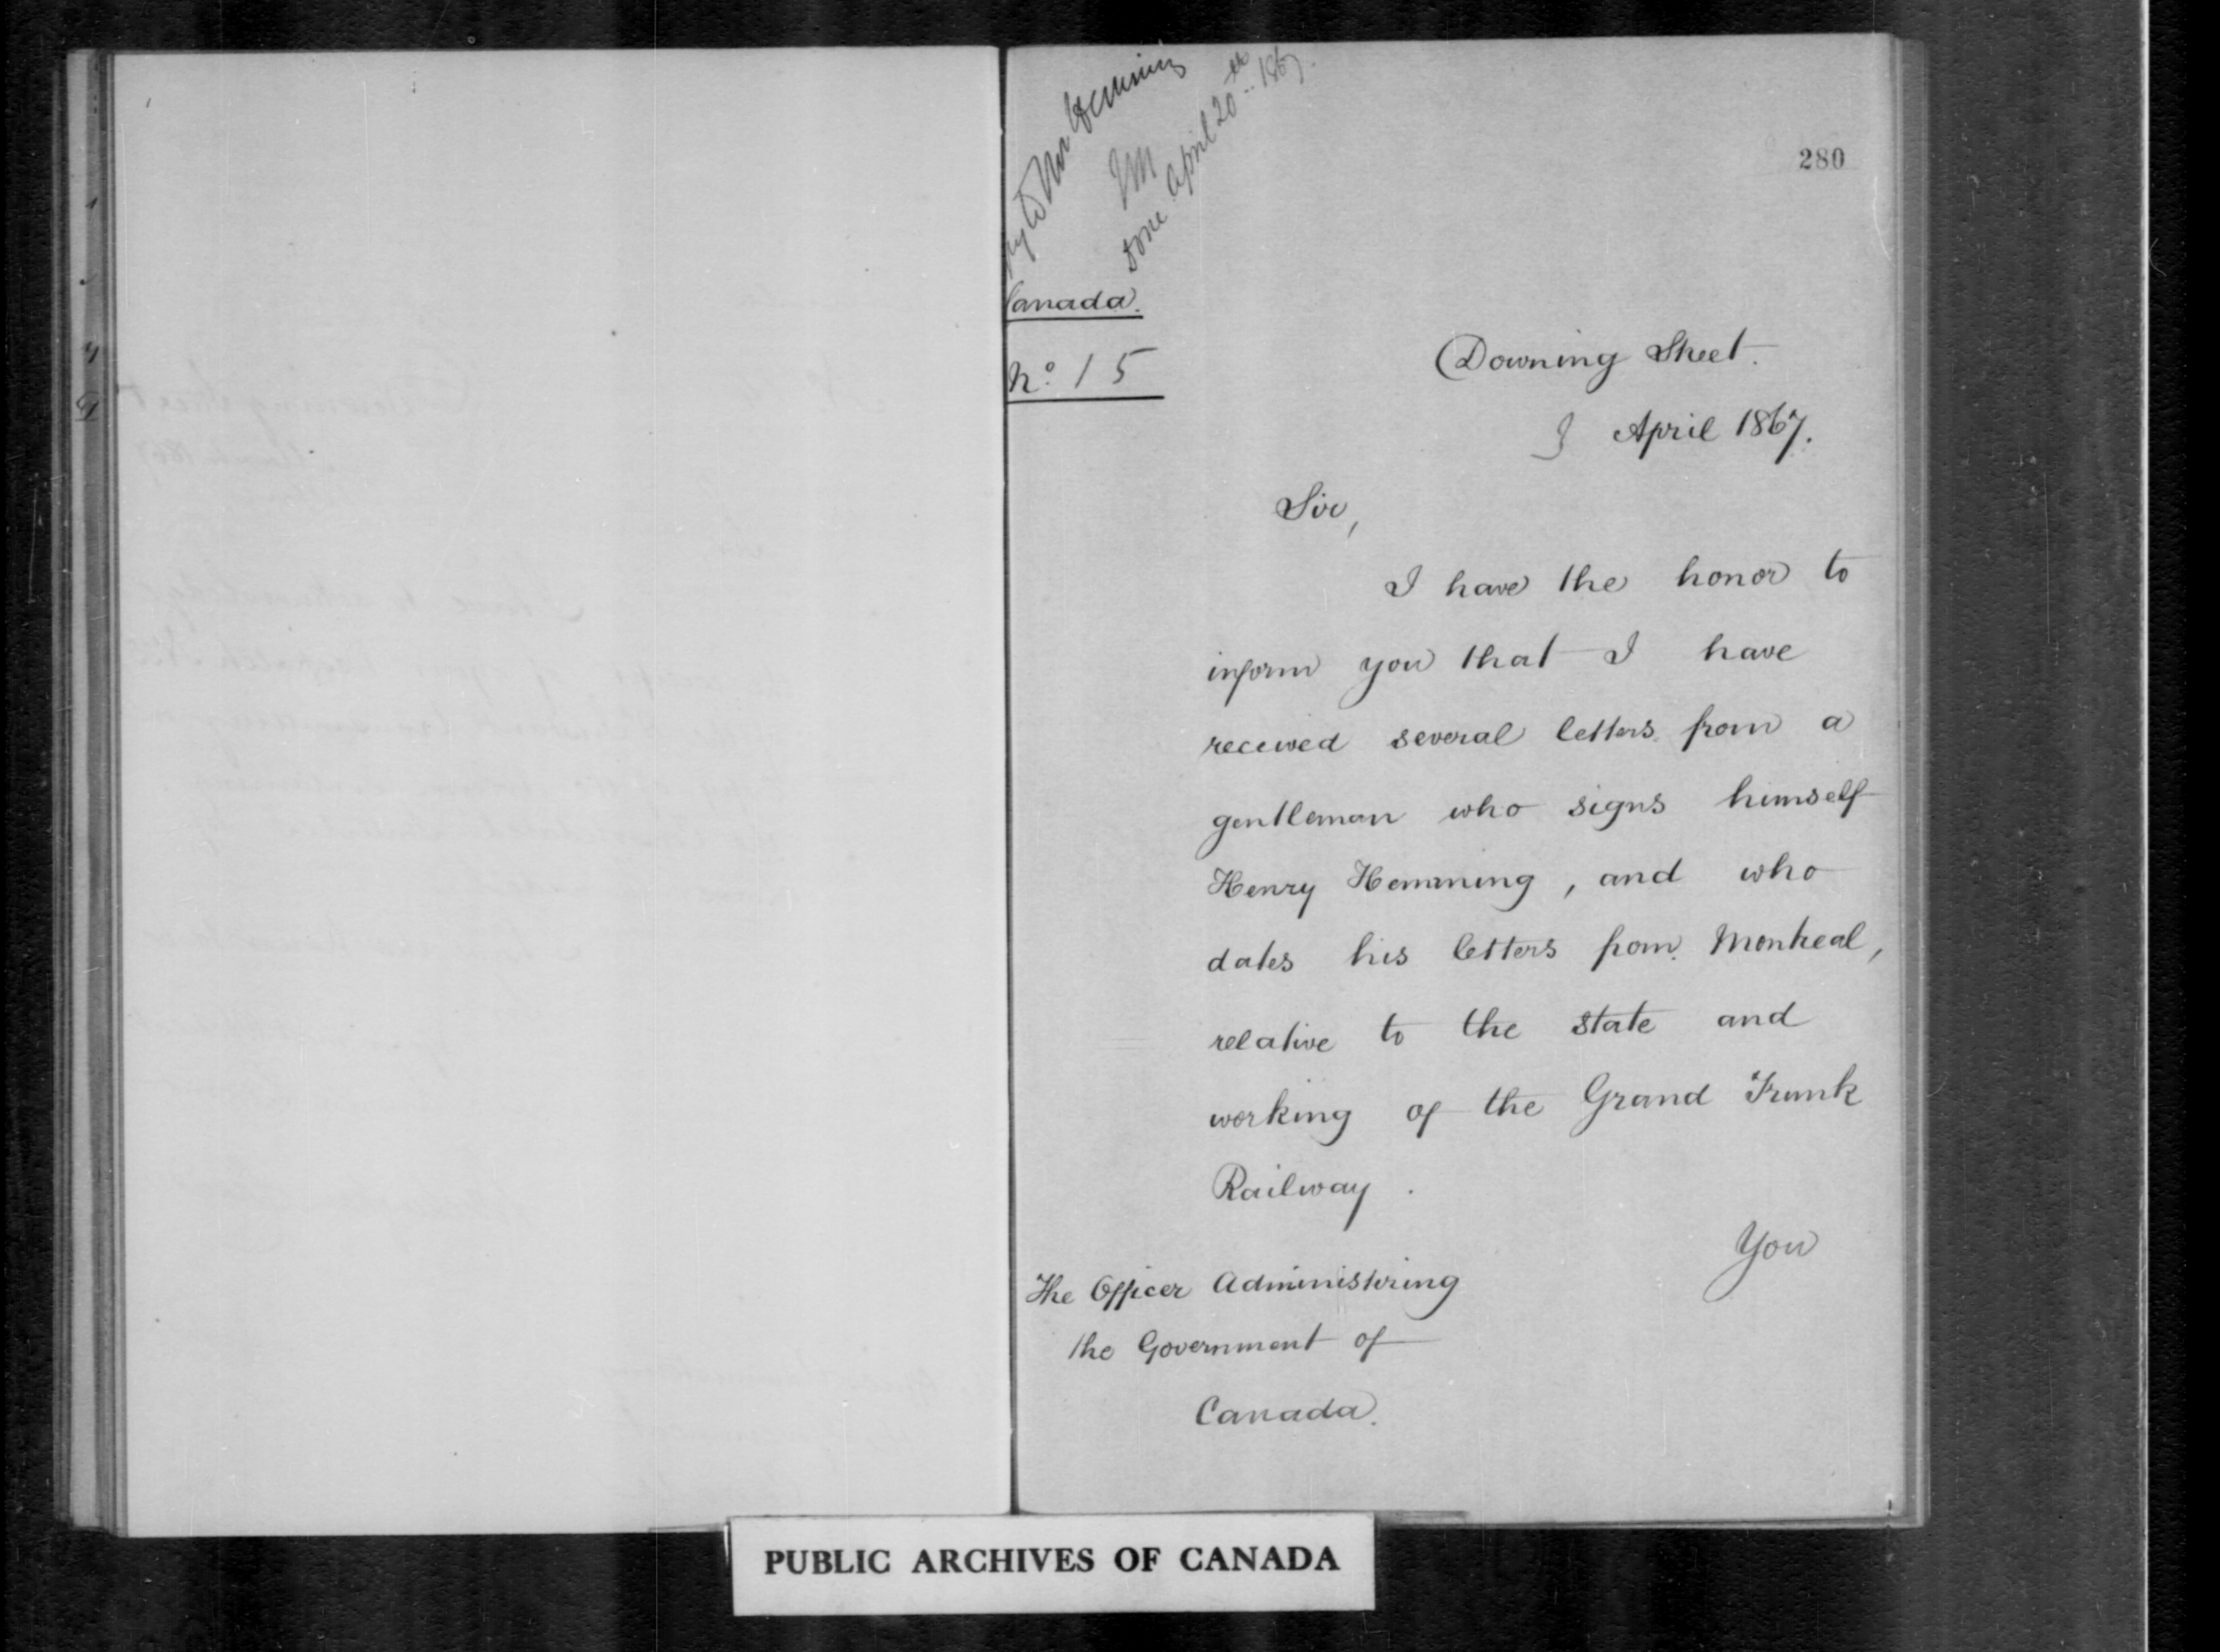 to Mr Hemming
JM
Done April 20th 1867.
280
Canada.
No. 15
Downing Street.
April 1867.
Sir,
I have the honor to
inform you that I have
received several letters from a
gentleman who signs himself
Henry Hemming, and who
dates his letters from Montreal,
relative to the state and
working of the Grand Trunk
Railway.
You
The Officer Administering
the Government of
Canada.
PUBLIC ARCHIVES OF CANADA